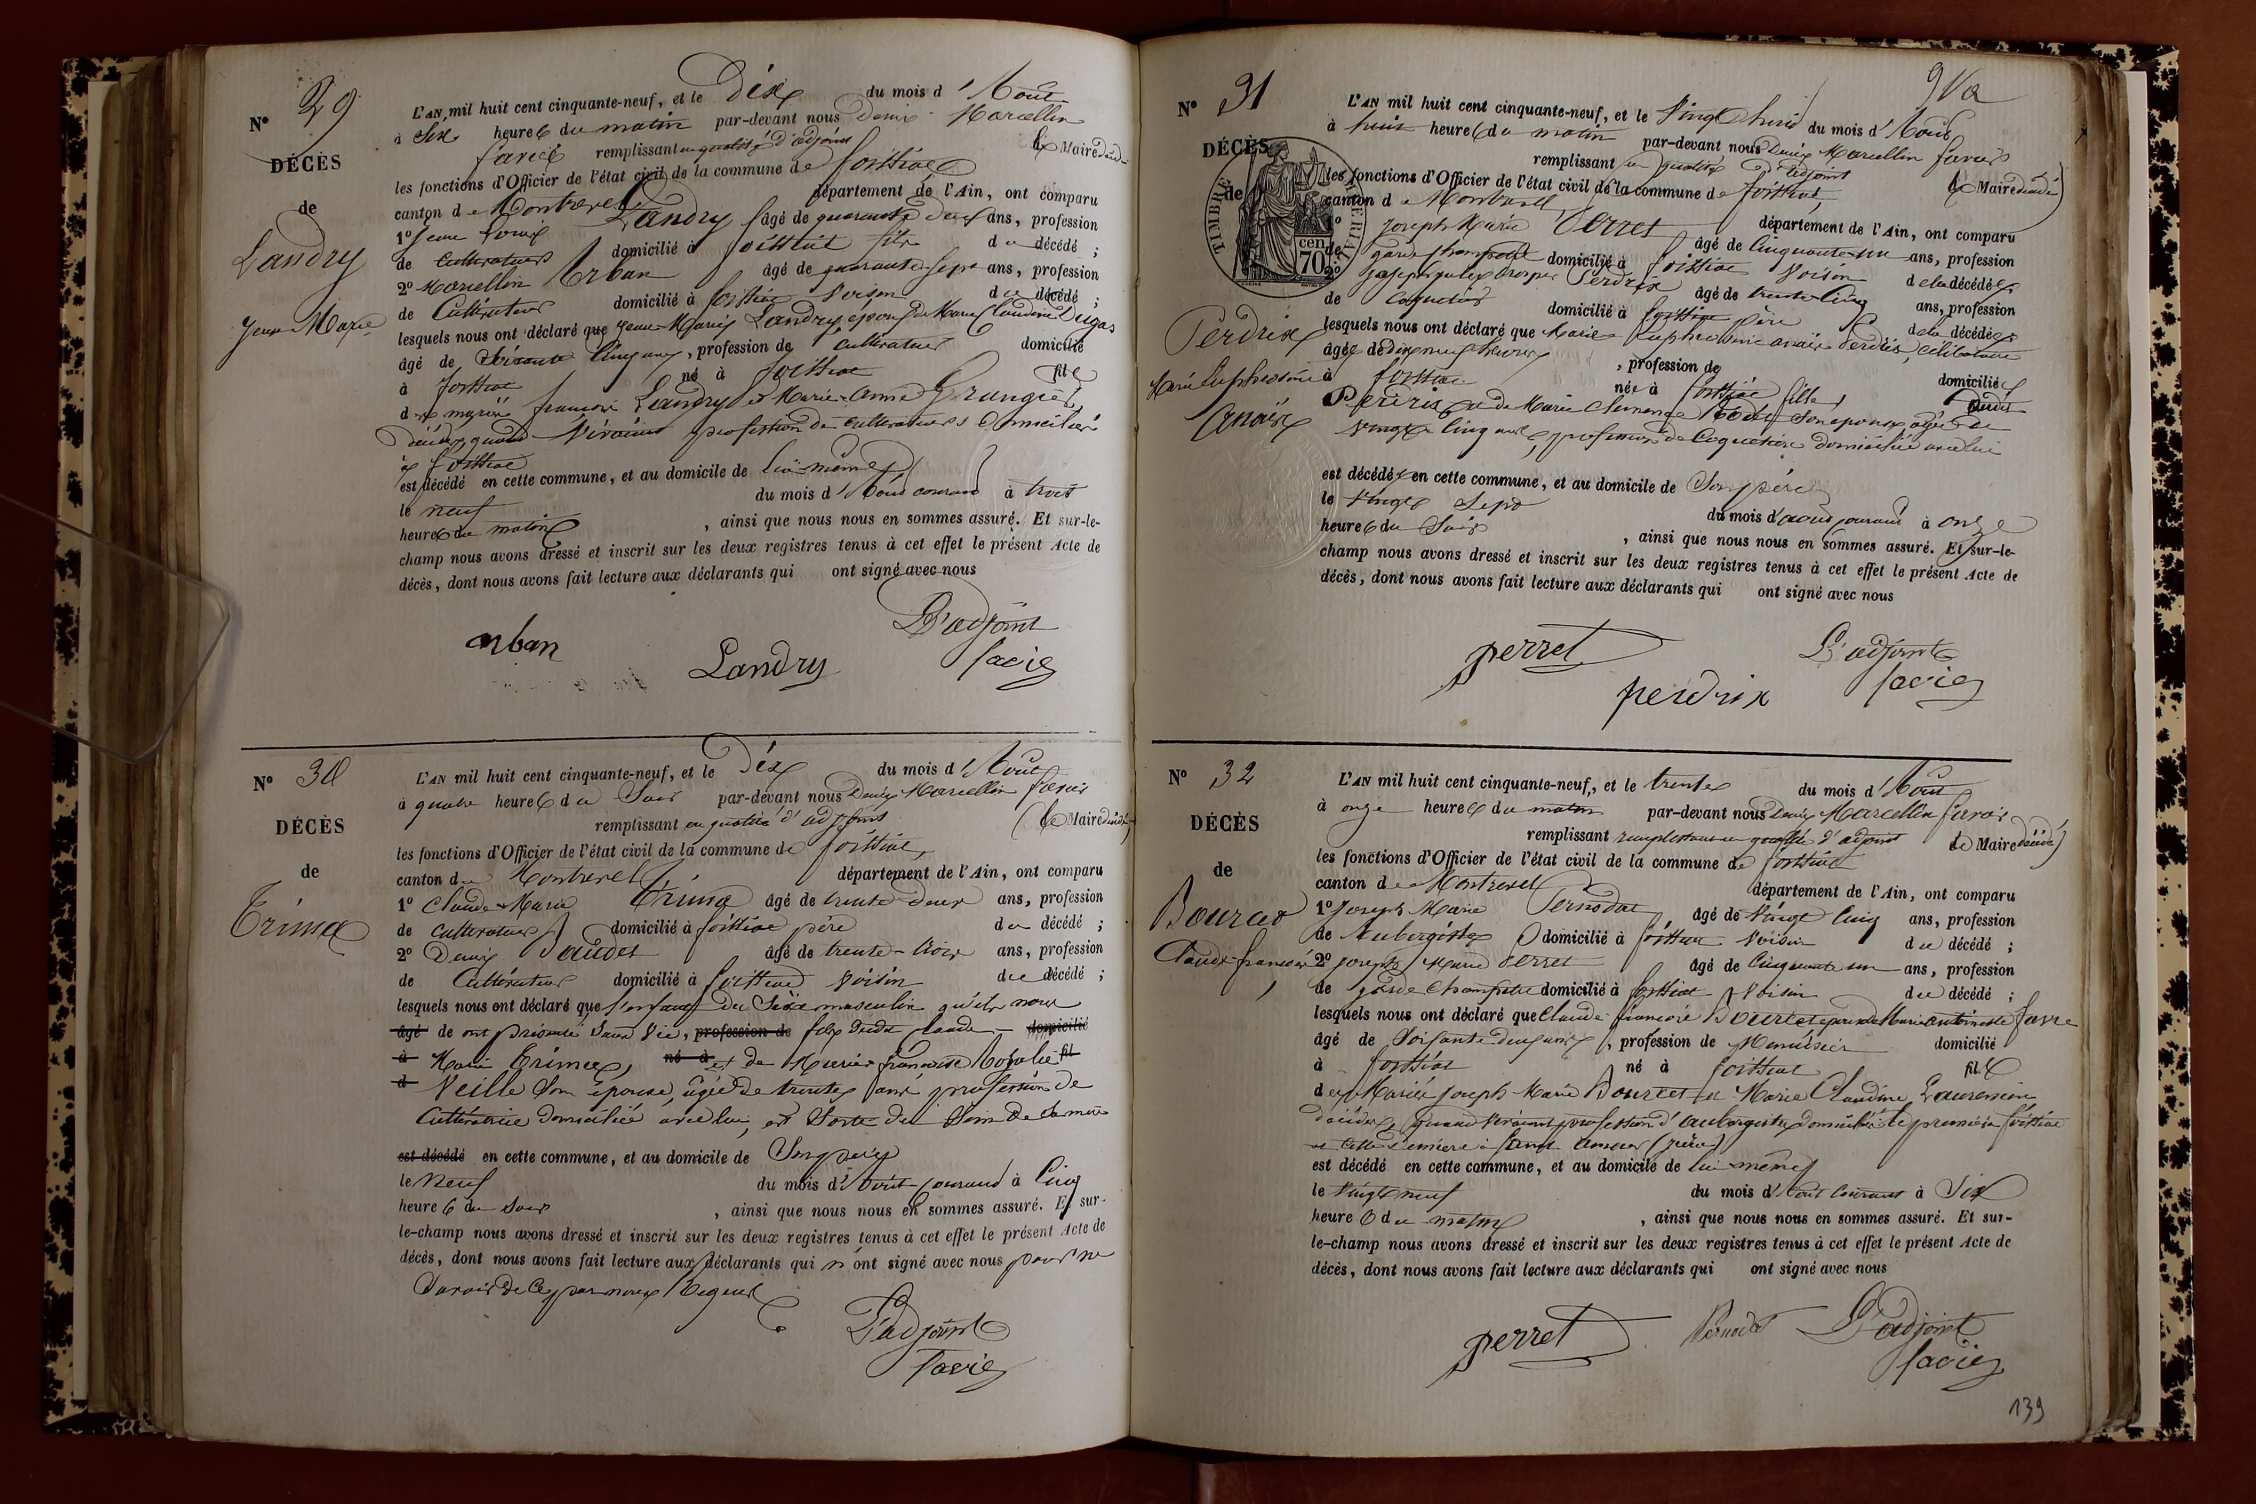 N° 29
DÉCÈS
de
Landry
Jean-Marie
L'AN mil huit cent cinquante-neuf, et le Dix du mois d'Août
à Six heures du matin par-devant nous Denis Marcellin
favier remplissant en qualité d'adjoint le Maire décédé
les fonctions d'Officier de l'état civil de la commune de foissiat
canton de Montrevel département de l'Ain, ont comparu
1° Jean Louis Landry âgé de quarante deux ans, profession
de Cultivateur domicilié à foissiat fils du décédé ;
2° Marcellin Arban âgé de quarante-sept ans, profession
de Cultivateur domicilié à foissiat Voisin du décédé ;
lesquels nous ont déclaré que Jean-Marie Landry époux de Marie Claudine Dugas
âgé de Soixante Cinq ans, profession de Cultivateur domicilié
à foissiat né à foissiat fils
des mariés françois Landry et Marie-Anne
décédés, quand Vivaient profession de cultivateurs domiciliés
à foissiat
est décédé en cette commune, et au domicile de lui-même
le neuf du mois d'Août courant à trois
heures du matin, ainsi que nous nous en sommes assuré. Et sur-le-
champ nous avons dressé et inscrit sur les deux registres tenus à cet effet le présent Acte de
décès, dont nous avons fait lecture aux déclarants qui ont signé avec nous
arban
Landry
L'adjoint
favier
N° 30
DÉCÈS
de
Trima
L'AN mil huit cent cinquante-neuf, et le Dix du mois d'Août
à quatre heures du Soir par-devant nous Denis Marcellin favier
remplissant en qualité d'adjoint le Maire décédé
les fonctions d'Officier de l'état civil de la commune de foissiat,
canton de Montrevel département de l'Ain, ont comparu
1° Claude-Marie Trima âgé de trente deux ans, profession
de cultivateur domicilié à foissiat père du décédé ;
2° Denis âgé de trente-trois ans, profession
de Cultivateur domicilié à foissiat Voisin du décédé ;
lesquels nous ont déclaré que l'enfant du Sexe masculin qu'ils nous
âgé de ont présenté Sans Vie, profession de fils dudit Claude domicilié
à Marie Trima, né à et de Marie françoise Rosalie fil
d Veille Son épouse, âgée de trente ans profession de
Cultivatrice domiciliée avec lui, est Sorti du Sein de Sa mère
est décédé en cette commune, et au domicile de Son père
le Neuf du mois d'Août courant à Cinq
heures du Soir, ainsi que nous nous en sommes assuré. Et sur-
le-champ nous avons dressé et inscrit sur les deux registres tenus à cet effet le présent Acte de
décès, dont nous avons fait lecture aux déclarants qui n'ont signé avec nous pour ne
Savoir de Ce par nous Requis
L'adjoint
favier
N° 31
DÉCÈS
de
TIMBRE IMPÉRIAL
70 cen
Perdrix
Marie Euphrosine
Anaïs
L'AN mil huit cent cinquante-neuf, et le Vingt huit du mois d'Août
à huit heures du matin par-devant nous Denis Marcellin favier
remplissant en qualité d'adjoint le Maire décédé
les fonctions d'Officier de l'état civil de la commune de foissiat,
canton de Montrevel département de l'Ain, ont comparu
1° Joseph Marie Perret âgé de Cinquante un ans, profession
de garde champêtre domicilié à foissiat Voisin de la décédée
2° Prosper Perdrix âgé de trente Cinq ans, profession
de Coquetier domicilié à foissiat père de la décédée
lesquels nous ont déclaré que Marie Euphrosine anaïs Perdrix, célibataire
âgée de dix neuf heures, profession de domiciliée
à foissiat née à foissiat fille dudit
Perdrix et de Marie Clemence Son épouse âgée de
vingt Cinq ans, profession de Coquetière domiciliée avec lui
est décédée en cette commune, et au domicile de Son père
le Vingt Sept du mois d'Août courant à onze
heures du Soir, ainsi que nous nous en sommes assuré. Et sur-le-
champ nous avons dressé et inscrit sur les deux registres tenus à cet effet le présent Acte de
décès, dont nous avons fait lecture aux déclarants qui ont signé avec nous
perret
perdrix
L'adjoint
favier
N° 32
DÉCÈS
de
Bourcet
Claude-françois
L'AN mil huit cent cinquante-neuf, et le trente du mois d'Août
à onze heures du matin par-devant nous Denis Marcellin favier
remplissant remplissant en qualité d'adjoint le Maire décédé
les fonctions d'Officier de l'état civil de la commune de foissiat
canton de Montrevel département de l'Ain, ont comparu
1° Joseph Marie Pernodat, âgé de Vingt Cinq ans, profession
de Aubergiste domicilié à foissiat Voisin du décédé ;
2° Joseph Marie Perret âgé de Cinquante un ans, profession
de garde Champêtre domicilié à foissiat Voisin du décédé ;
lesquels nous ont déclaré que Claude françois Bourcet époux de Marie Antoinette favre
âgé de Soixante deux ans, profession de Menuisier domicilié
à foissiat né à foissiat fils
des Mariés Joseph Marie Bourcet et Marie Claudine Laurencin
décédés, quand Vivaient profession d'aubergistes domiciliés le premier à foissiat
et Cette dernière à Saint amour (Jura)
est décédé en cette commune, et au domicile de lui-même
le Vingt neuf du mois d'Août Courant à Six
heures du matin, ainsi que nous nous en sommes assuré. Et sur-
le-champ nous avons dressé et inscrit sur les deux registres tenus à cet effet le présent Acte de
décès, dont nous avons fait lecture aux déclarants qui ont signé avec nous
perret
Pernodat
L'adjoint
favier
139